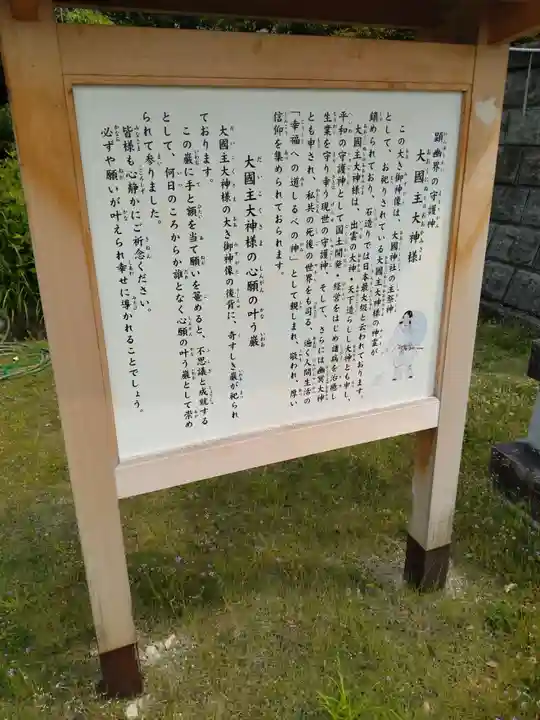 顕幽界の守護神
大國主大神様
この大き御神像は、大國神社の主祭神
として、お祀りされている大國主大神様の神霊が
鎮められており、石造りでは日本最大級と云われております。
大國主大神様は、出雲の大神・天下造らしし大神とも申し、
平和の守護神として国土開発、経営をはじめ諸病を治癒し
生業を守り幸う現世の守護神、そして、さらには幽冥大神
とも申され、私共の死後の世界をも司る、遍く人間生活の
「幸福への道しるべの神」として親しまれ、敬われ、厚い
信仰を集められております。
大國主大神様の心願の叶う巌
大國主大神様の大き御神像の後背に、奇すしき巌が祀られ
ております。
この巌に手と額を当て願いを篭めると、不思議と成就する
として、何日のころからか誰となく心願の叶う巌として崇め
られて参りました。
皆様も心静かにご祈念ください。
必ずや願いが叶えられ幸せに導かれることでしょう。